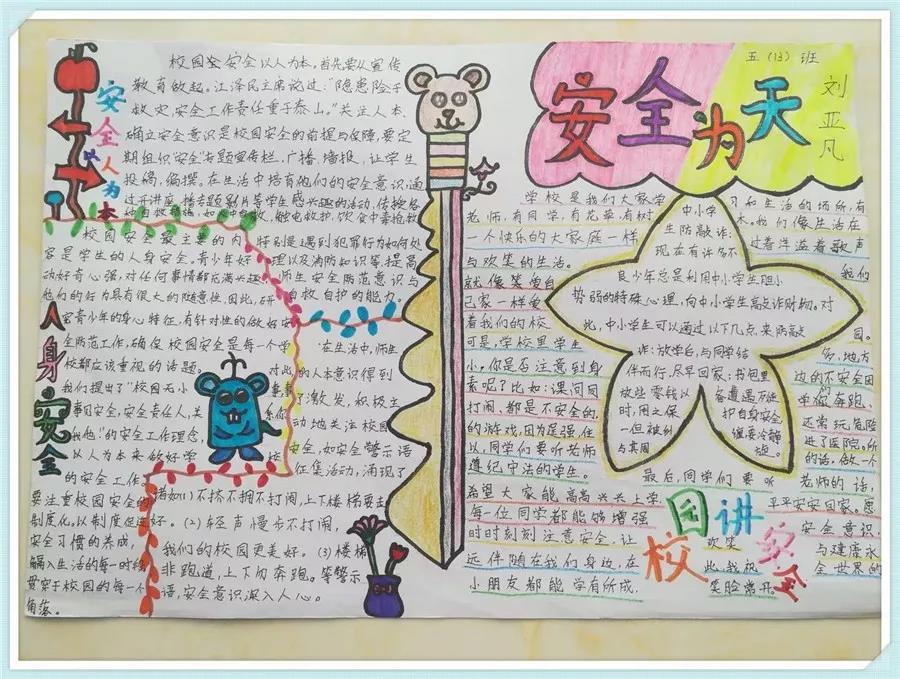 安全为天
五(13)班
刘亚凡
安全人为本
校园安全以人为本,首先要从宣传
教育做起。江泽民主席说过:"隐患险于
安全工作责任重于泰山。"关注人本
确立安全意识是校园安全的前提与保障,要定
期组织"安全"专题宣传栏、广播、墙报,让学生
投稿,编撰。在生活中培育他们的安全意识,通
过开讲座、播专题影片等学生感兴趣的活动,传授各
触电救护,饮食中毒抢救
校园安全最主要的内
容是学生的人身安全。青少年好
动好奇心强,对任何事情都充满兴趣,
他们的行为具有很大的随意性,因此,研
究青少年的身心特征,有针对性的做好安
全防范工作,确保校园安全是每一个学
校都应该重视的话题。
我们提出了"校园无小
事事安全,安全责任人,关系你
我他"的安全工作理念,
以人为本来做好学
的安全工作。
要注重校园安全的
制度化,以制度促进
安全习惯的养成,
融入生活的每一时刻,
贯穿于校园的每一个
角落。
特别是遇到犯罪行为如何处
理以及消防知识等,提高
师生安全防范意识与
自救自护的能力。
在生活中,师生
对此的人本意识得到
了激发,积极主
动地关注校园
安全,如安全警示语
征集活动,涌现了
诸如(1)不挤不拥不打闹,上下楼梯要走
好。(2)轻声慢步不打闹,
我们的校园更美好。(3)楼梯
非跑道,上下勿奔跑。等警示
语,安全意识深入人心。
人身安全
学校是我们大家学
习和生活的场所,有
老师,有同学,有花草,有树
木,我们像生活在
一个快乐的大家庭一样
过着洋溢着歌声
与欢笑的生活。
我们
就像爱自
己家一样爱
着我们的校
园。
可是,学校里学生
多,地方
小。你是否注意到身
边的不安全因
素呢?比如:课间同
学奔跑、
打闹、都是不安全的,
还常玩危险
的游戏,因为逞强,住
进了医院。所
以,同学们要听老师
的话,做一个
遵纪守法的学生。
中小学
生防敲诈:
现在有许多不
良少年总是利用中小学生胆小
势弱的特殊心理,向中小学生敲诈财物。对
此,中小学生可以通过以下几点,来防敲
诈:放学后,与同学结
伴而行,尽早回家;书包里
放些零钱以备遭遇不测
时,用之保护自身安全
一但被纠缠要冷静
与其周旋。
最后,同学们要听老师的话,
希望大家能高高兴兴上学
平平安安回家。愿
每一位同学都能够增强
安全意识,
时时刻刻注意安全,让
欢笑
与健康永
远伴随在我们身边,在
此,我祝
全世界的
小朋友都能学有所成,
笑脸常开。
校园讲安全